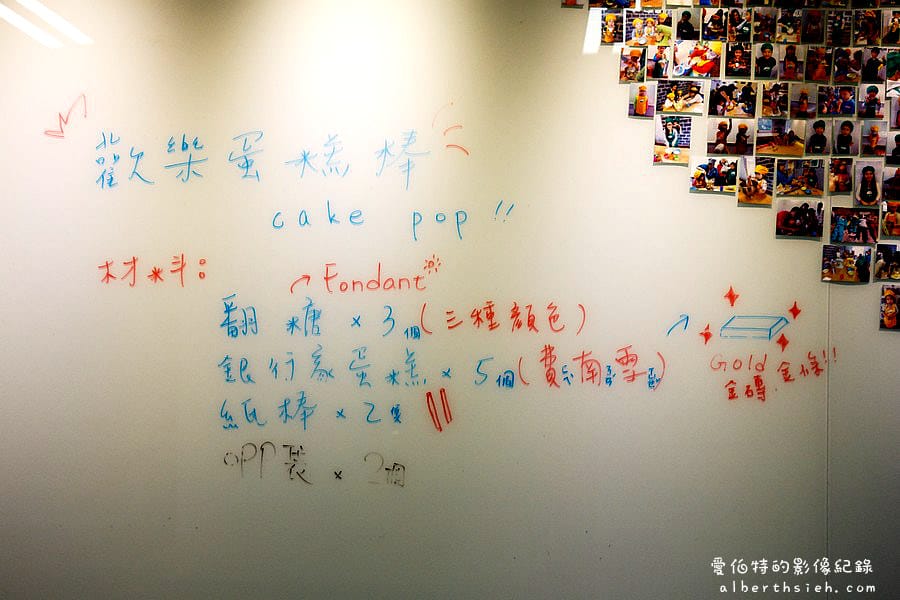 歡樂蛋糕棒
cake pop !!
材料:
Fondant
翻糖 x 3個(三種顏色)
銀行家蛋糕 x 5個(費南雪)
紙棒 x 2隻
OPP袋 x 2個
Gold
金磚.金條!!
愛伯特的影像紀錄
alberthsieh.com